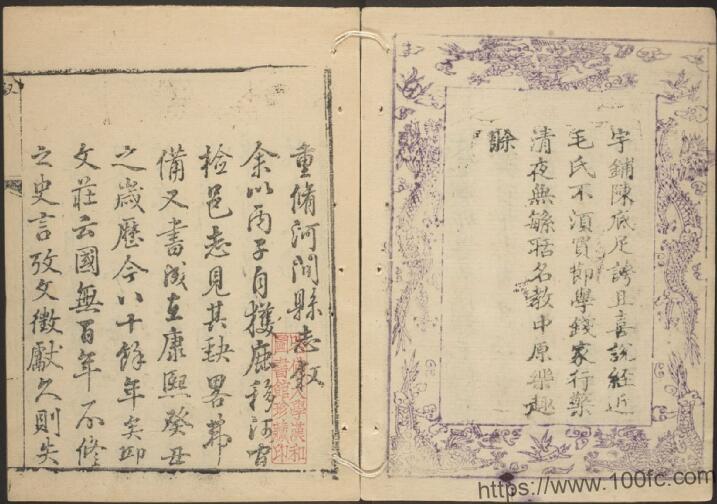 字鋪陳底足誇且喜說經近
毛氏不須買學錢家行藥
清夜無聒名教中原樂趣
賖
重脩河間縣志敘
余以丙子自獲鹿移河間
檢邑志見其缺畧弗
備又書成在康熙癸丑
之歲歷今八十餘年矣邱
文莊云國無百年不修
之史言攷文徵獻久則失
哈佛大學漢和
圖書館珍藏印
https://www.100fc.com